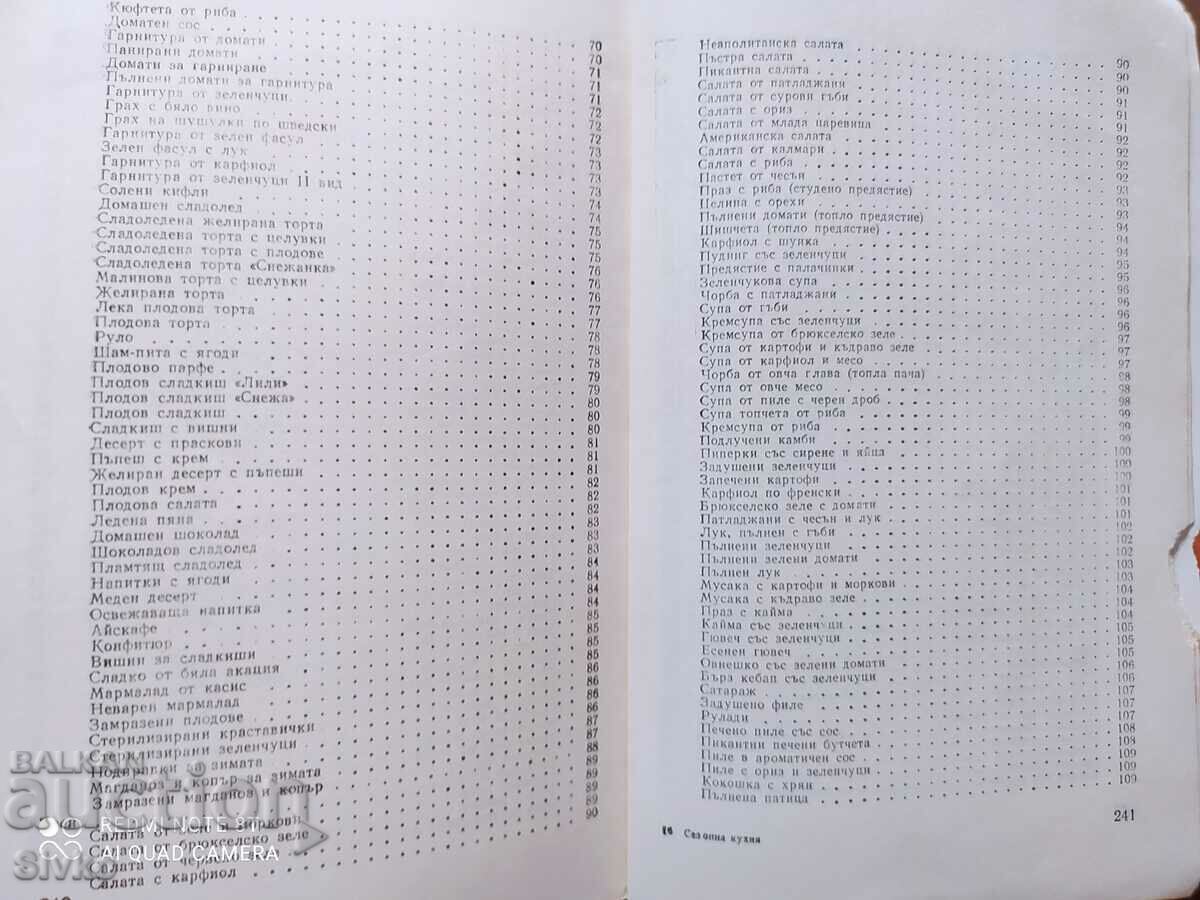 Кюфтета от риба
Доматен сос
Гарнитура от домати 70
Панирани домати 70
Домати за гарниране 71
Пълнени домати за гарнитура 71
Гарнитура от зеленчуци 71
Грах с бяло вино 72
Грах на шушулки по шведски 72
Гарнитура от зелен фасул 72
Зелен фасул с лук 73
Гарнитура от карфиол 73
Гарнитура от зеленчуци II вид 73
Солени кифли 73
Домашен сладолед 74
Сладоледена желирана торта 74
Сладоледена торта с целувки 75
Сладоледена торта с плодове 75
Сладоледена торта «Снежанка» 75
Малинова торта с целувки 76
Желирана торта 76
Лека плодова торта 76
Плодова торта 77
Руло 77
Шам-пита с ягоди 78
Плодово парфе 78
Плодов сладкиш «Лили» 79
Плодов сладкиш «Снежа» 79
Плодов сладкиш 80
Сладкиш с вишни 80
Десерт с праскови 80
Пъпеш с крем 81
Желиран десерт с пъпеши 81
Плодов крем 81
Плодова салата 82
Ледена пяна 82
Домашен шоколад 82
Шоколадов сладолед 83
Пламтящ сладолед 83
Напитки с ягоди 83
Меден десерт 84
Освежаваща напитка 84
Айскафе 84
Конфитюр 85
Вишни за сладкиши 85
Сладко от бяла акация 85
Мармалад от касис 86
Неварен мармалад 86
Замразени плодове 86
Стерилизирани краставички 87
Стерилизирани зеленчуци 87
Подправки за зимата 88
Магданоз и копър за зимата 89
Замразени магданоз и копър 89
Салата от
Салата от брюкселско зеле
Салата от
Салата с карфиол
89
90
Неаполитанска салата
Пъстра салата 90
Пикантна салата 90
Салата от патладжани 90
Салата от сурови гъби 91
Салата с ориз 91
Салата от млада царевица 91
Американска салата 92
Салата от калмари 92
Салата с риба 92
Пастет от чесън 92
Праз с риба (студено предястие) 93
Целина с орехи 93
Пълнени домати (топло предястие) 93
Шишчета (топло предястие) 94
Карфиол с шунка 94
Пудинг със зеленчуци 94
Предястие с палачинки 95
Зеленчукова супа 95
Чорба с патладжани 96
Супа от гъби 96
Кремсупа със зеленчуци 96
Кремсупа от брюкселско зеле 96
Супа от картофи и къдраво зеле 97
Супа от карфиол и месо 97
Чорба от овча глава (топла пача) 97
Супа от овче месо 98
Супа от пиле с черен дроб 98
Супа топчета от риба 98
Кремсупа от риба 99
Подлучени камби 99
Пиперки със сирене и яйца 99
Задушени зеленчуци 100
Запечени картофи 100
Карфиол по френски 100
Брюкселско зеле с домати 101
Патладжани с чесън и лук 101
Лук, пълнен с гъби 101
Пълнени зеленчуци 102
Пълнени зелени домати 102
Пълнен лук 102
Мусака с картофи и моркови 103
Мусака с къдраво зеле 103
Праз с кайма 104
Кайма със зеленчуци 104
Гювеч със зеленчуци 104
Есенен гювеч 105
Овнешко със зелени домати 105
Бърз кебап със зеленчуци 105
Сатараж 106
Задушено филе 106
Рулади 107
Печено пиле със сос 107
Пикантни печени бутчета 108
Пиле в ароматичен сос 108
Пиле с ориз и зеленчуци 109
Кокошка с хрян 109
Пълнена патица 109
241
16 Сезонна кухня
BALKAN
auction
REDMI NOTE 8T
AI QUAD CAMERA
sivko